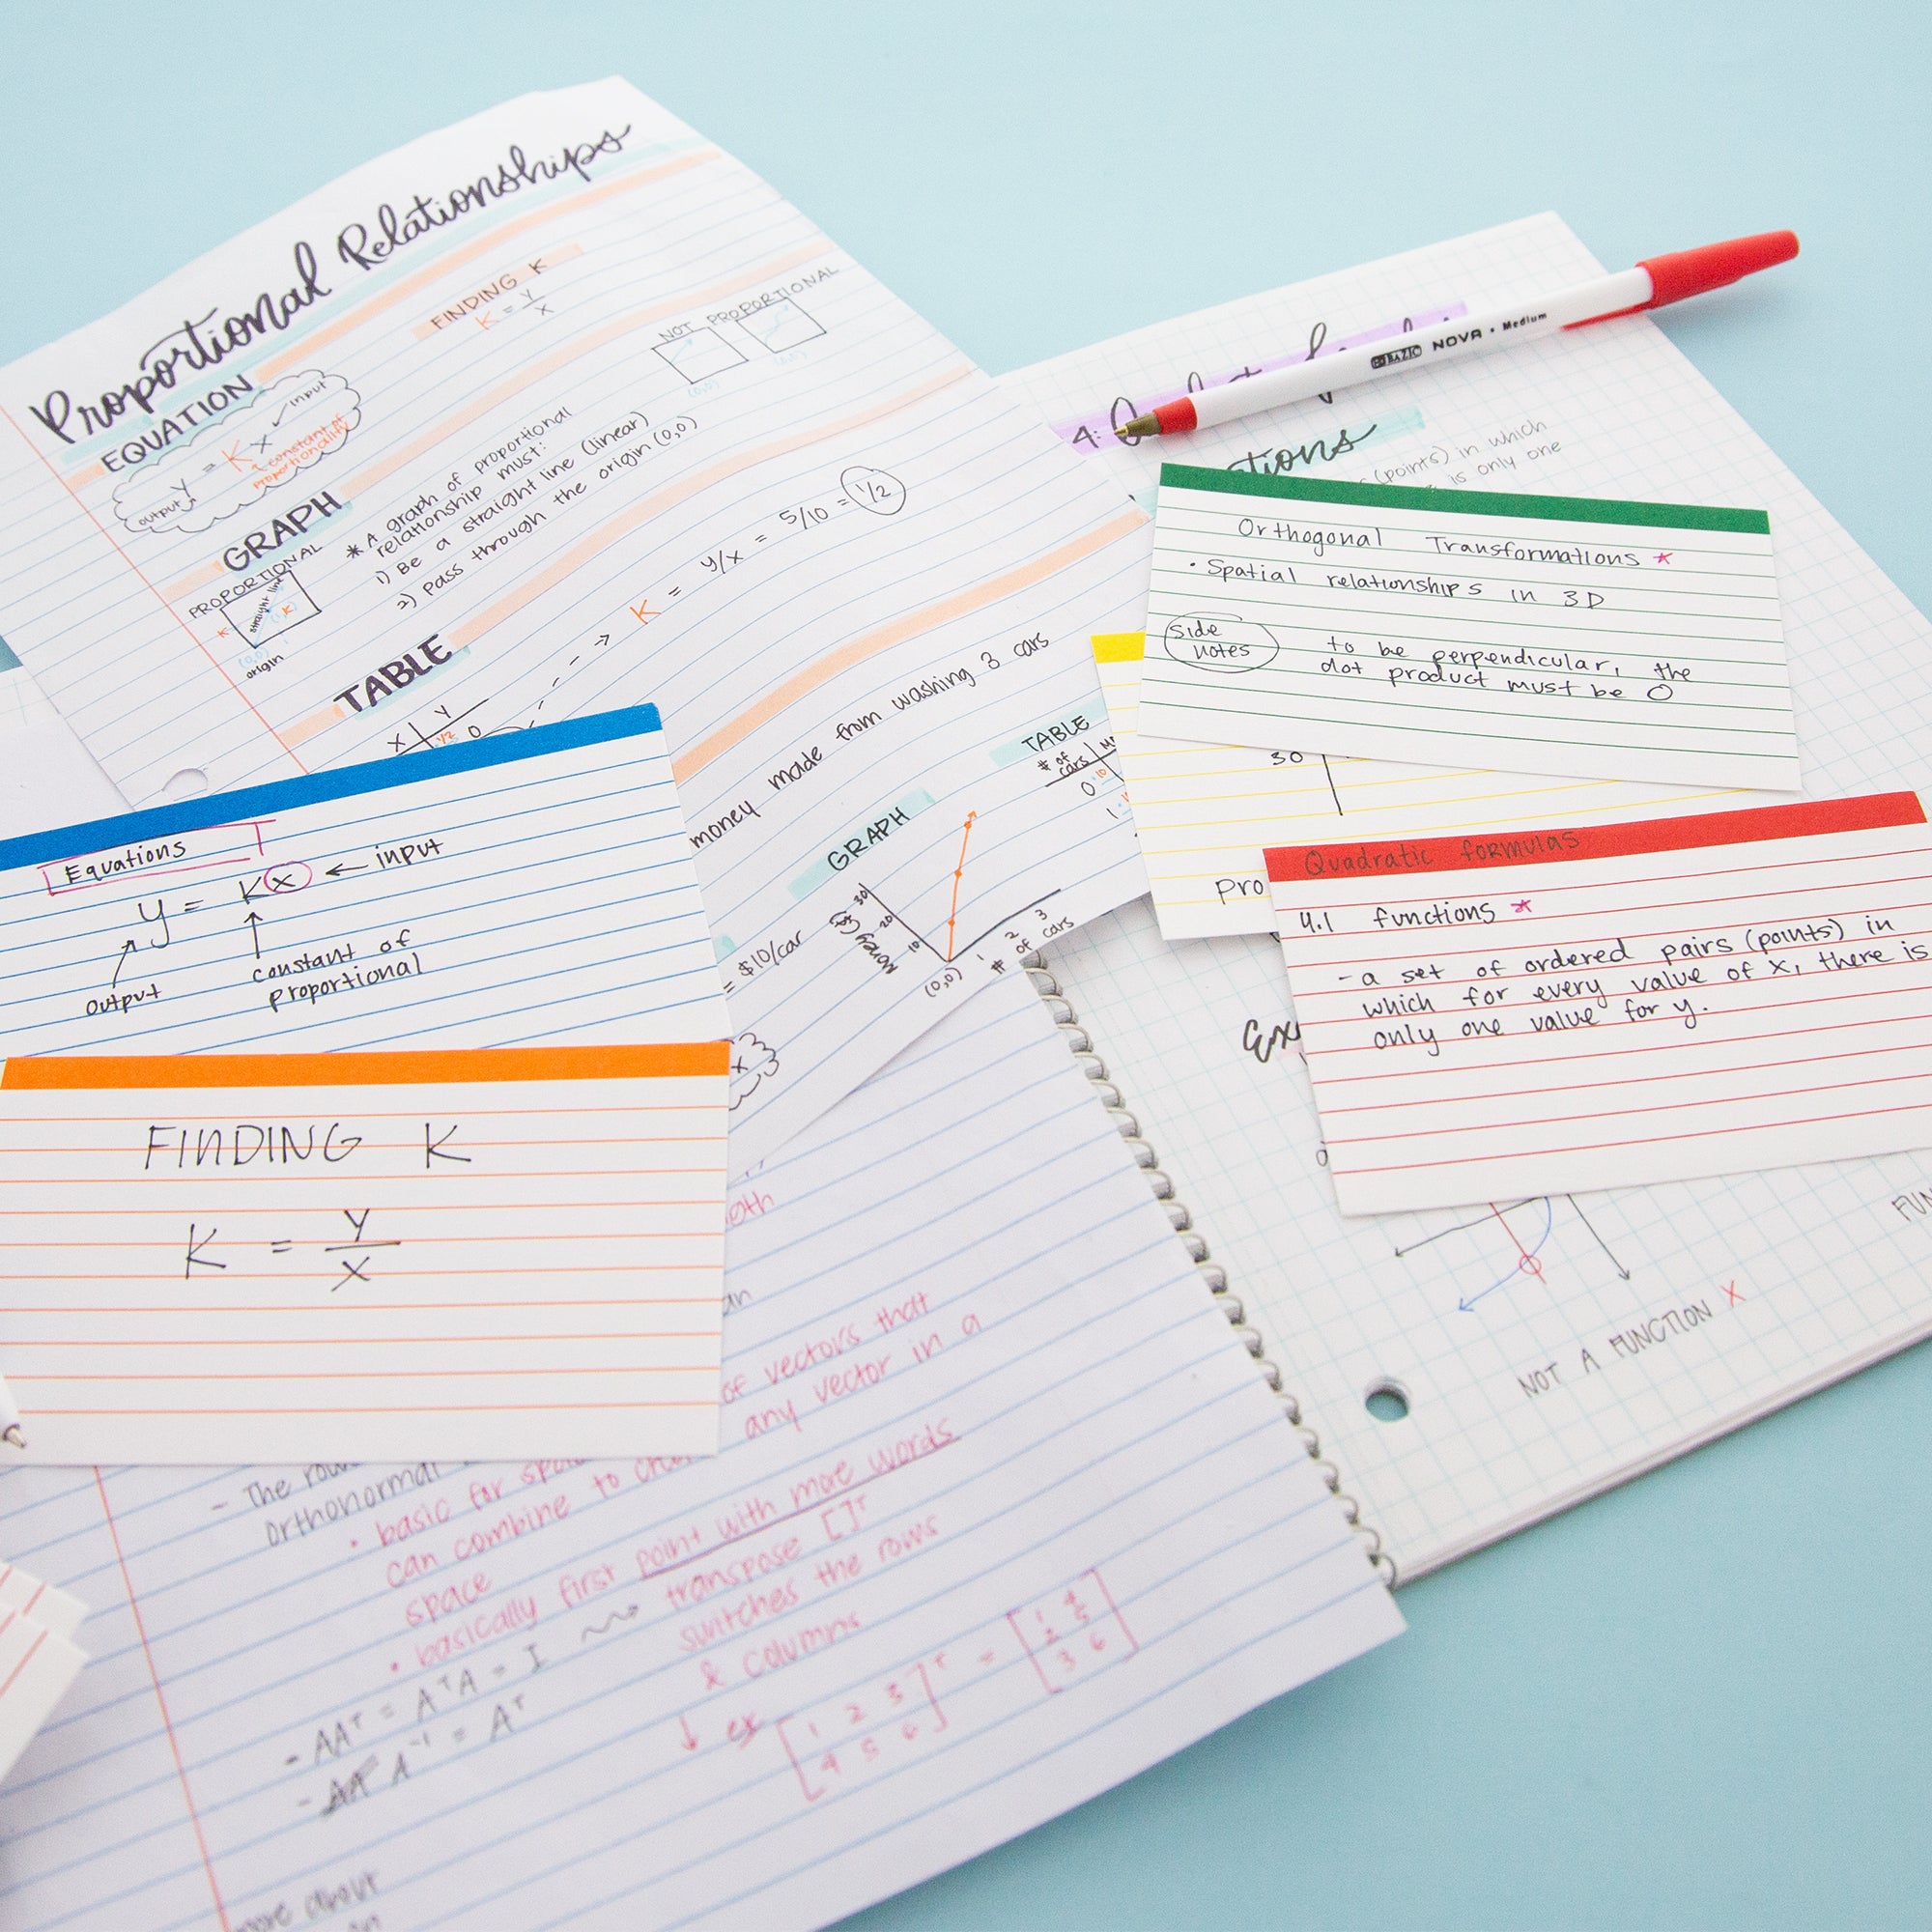 Proportional Relationships
EQUATION
input
y = Kx
constant of
proportionality
output
FINDING K
K = y/x
NOT PROPORTIONAL
(0,0)
(0,0)
GRAPH
PROPORTIONAL
straight line
K
(K)
(0,0)
origin
* A graph of proportional
relationship must:
1) Be a straight line (linear)
2) pass through the origin (0,0)
TABLE
X Y
1/2 0
K = y/x = 5/10 = 1/2
money made from washing 3 cars
TABLE
# of
cars
0
1
GRAPH
Money ($)
10 20 30
(0,0)
1 2 3
# of cars
= $10/car
x
4:
BAZIC NOVA • Medium
tions
(points) in which
is only one
Orthogonal Transformations *
• Spatial relationships in 3D
side
notes
to be perpendicular, the
dot product must be 0
30
pro
Quadratic formulas
4.1 functions *
- a set of ordered pairs (points) in
which for every value of x, there is
only one value for y.
Ex
FUN
NOT A FUNCTION X
Equations
y = Kx ← input
output
constant of
proportional
FINDING K
K = y/x
of vectors that
any vector in a
- The row
orthonormal
• basic for spac
can combine to
space
• basically first point with more words
- AAᵀ = AᵀA = I
transpose []ᵀ
switches the rows
& columns
- A⁻¹ = Aᵀ
↓ ex
[1 2 3
4 5 6]ᵀ = [1 4
2 5
3 6]
more about